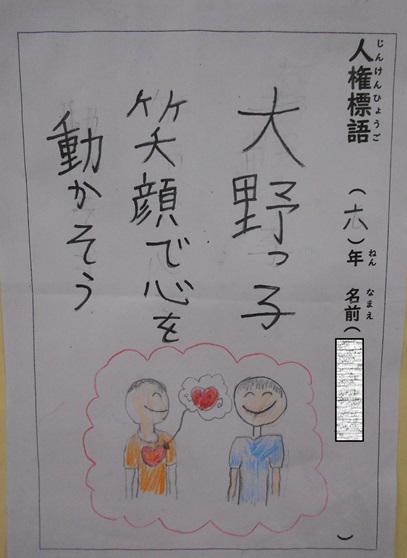 人権標語 (六)年 名前( )
じんけんひょうご ねん なまえ
大野っ子
笑顔で心を
動かそう